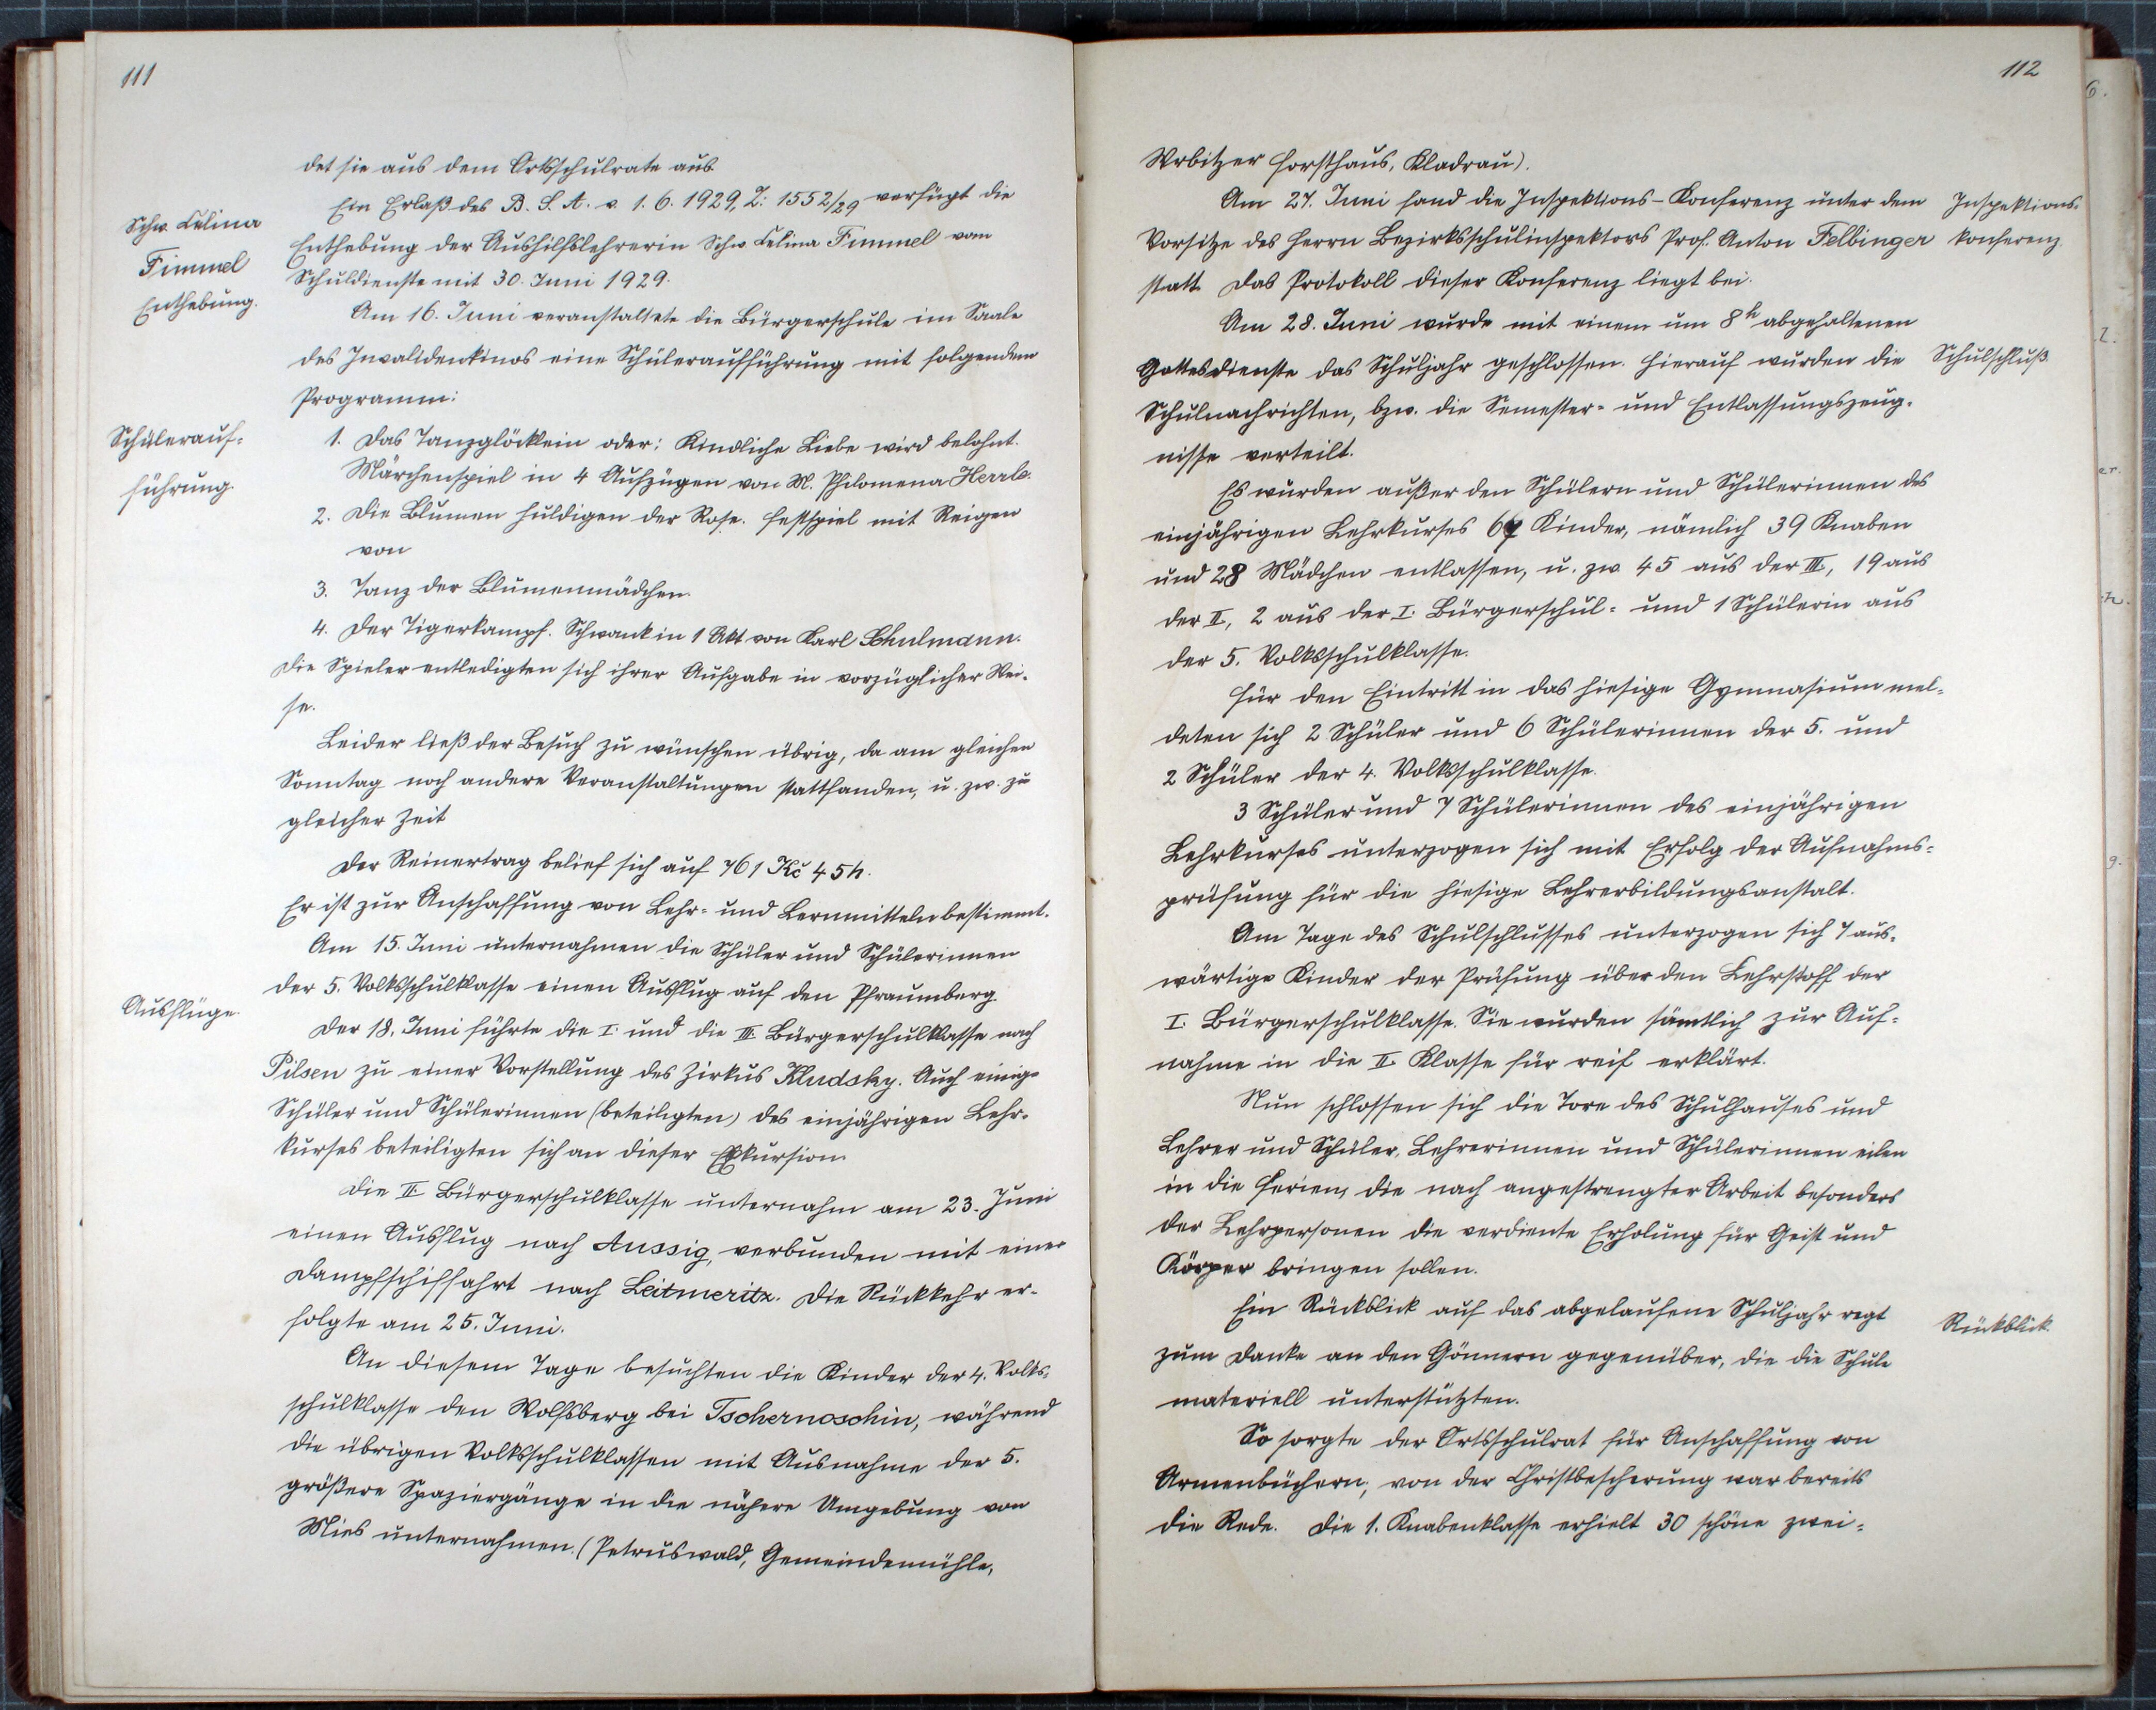 111
det sie aus dem Ortsschulrate aus.
Ein Erlaß des B. S. A. v. 1. 6. 1929, Z: 1552/29 verfügt die
Schw. Celina
Fimmel
Enthebung.
Enthebung der Aushilfslehrerin Schw. Celina Fimmel vom
Schuldienste mit 30. Juni 1929.
Am 16. Juni veranstaltete die Bürgerschule im Saale
des Invalidenkinos eine Schüleraufführung mit folgendem
Programm:
Schülerauf=
führung.
1. Das Tanzglöcklein oder: Kindliche Liebe wird belohnt.
Märchenspiel in 4 Aufzügen von M. Philomena
2. Die Blumen huldigen der Rose. Festspiel mit Reigen
von
3. Tanz der Blumenmädchen.
4. Der Tigerkampf. Schwank in 1 Akt von Karl Schulmann.
Die Spieler entledigten sich ihrer Aufgabe in vorzüglicher Wei-
se.
Leider ließ der Besuch zu wünschen übrig, da am gleichen
Sonntag noch andere Veranstaltungen stattfanden, u. zw. zu
gleicher Zeit
Der Reinertrag belief sich auf 761 Kč 45 h.
Er ist zur Anschaffung von Lehr- und Lernmitteln bestimmt.
Am 15. Juni unternahmen die Schüler und Schülerinnen
der 5. Volksschulklasse einen Ausflug auf den Pfraumberg.
Ausflüge.
Der 18. Juni führte die I. und die III. Bürgerschulklasse nach
Pilsen zu einer Vorstellung des Zirkus Kludsky. Auch einige
Schüler und Schülerinnen (beteiligten) des einjährigen Lehr-
kurses beteiligten sich an dieser Exkursion.
Die II. Bürgerschulklasse unternahm am 23. Juni
einen Ausflug nach Aussig, verbunden mit einer
Dampfschiffahrt nach Leitmeritz. Die Rückkehr er-
folgte am 25. Juni.
An diesem Tage besuchten die Kinder der 4. Volks-
schulklasse den Wolfsberg bei Tschernoschin, während
die übrigen Volksschulklassen mit Ausnahme der 5.
größere Spaziergänge in die nähere Umgebung von
Mies unternahmen. (Petruswald, Gemeindemühle,
112
Wrbitzer Forsthaus, Kladrau).
Am 27. Juni fand die Inspektions-Konferenz unter dem
Inspektions-
konferenz.
Vorsitze des Herrn Bezirksschulinspektors Prof. Anton Felbinger
statt. Das Protokoll dieser Konferenz liegt bei.
Am 28. Juni wurde mit einem um 8h abgehaltenen
Gottesdienste das Schuljahr geschlossen. Hierauf wurden die
Schulschluß.
Schulnachrichten, bzw. die Semester- und Entlassungszeug-
nisse verteilt.
Es wurden außer den Schülern und Schülerinnen des
einjährigen Lehrkurses 67 Kinder, nämlich 39 Knaben
und 28 Mädchen entlassen, u. zw. 45 aus der III, 19 aus
der II, 2 aus der I. Bürgerschul- und 1 Schülerin aus
der 5. Volksschulklasse.
Für den Eintritt in das hiesige Gymnasium mel-
deten sich 2 Schüler und 6 Schülerinnen der 5. und
2 Schüler der 4. Volksschulklasse.
3 Schüler und 7 Schülerinnen des einjährigen
Lehrkurses unterzogen sich mit Erfolg der Aufnahms-
prüfung für die hiesige Lehrerbildungsanstalt.
Am Tage des Schulschlusses unterzogen sich 7 aus-
wärtige Kinder der Prüfung über den Lehrstoff der
I. Bürgerschulklasse. Sie wurden sämtlich zur Auf-
nahme in die II. Klasse für reif erklärt.
Nun schlossen sich die Tore des Schulhauses und
Lehrer und Schüler, Lehrerinnen und Schülerinnen eilen
in die Ferien, die nach angestrengter Arbeit besonders
der Lehrpersonen die verdiente Erholung für Geist und
Körper bringen sollen.
Ein Rückblick auf das abgelaufene Schuljahr regt
Rückblick.
zum Danke an den Gönnern gegenüber, die die Schule
materiell unterstützten.
So sorgte der Ortsschulrat für Anschaffung von
Armenbüchern, von der Christbescherung war bereits
die Rede. Die 1. Knabenklasse erhielt 30 schöne zwei-